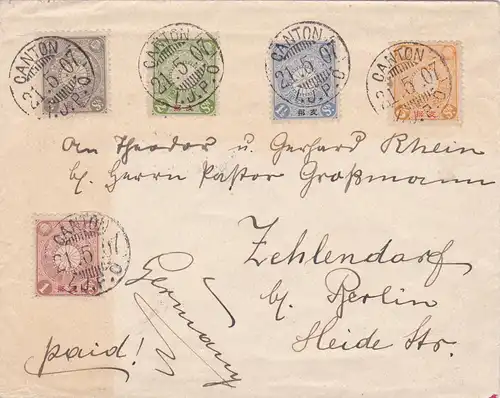 CANTON
21.5.07
I.J.P.O
CANTON
21.5.07
I.J.P.O
CANTON
21.5.07
I.J.P.O
CANTON
21.5.07
I.J.P.O
支那
An Theodor u. Gerhard Rhein
b. Herrn Pastor Großmann
CANTON
21.5.07
I.J.P.O
Zehlendorf
b. Berlin
Heide Str.
Germany
paid!